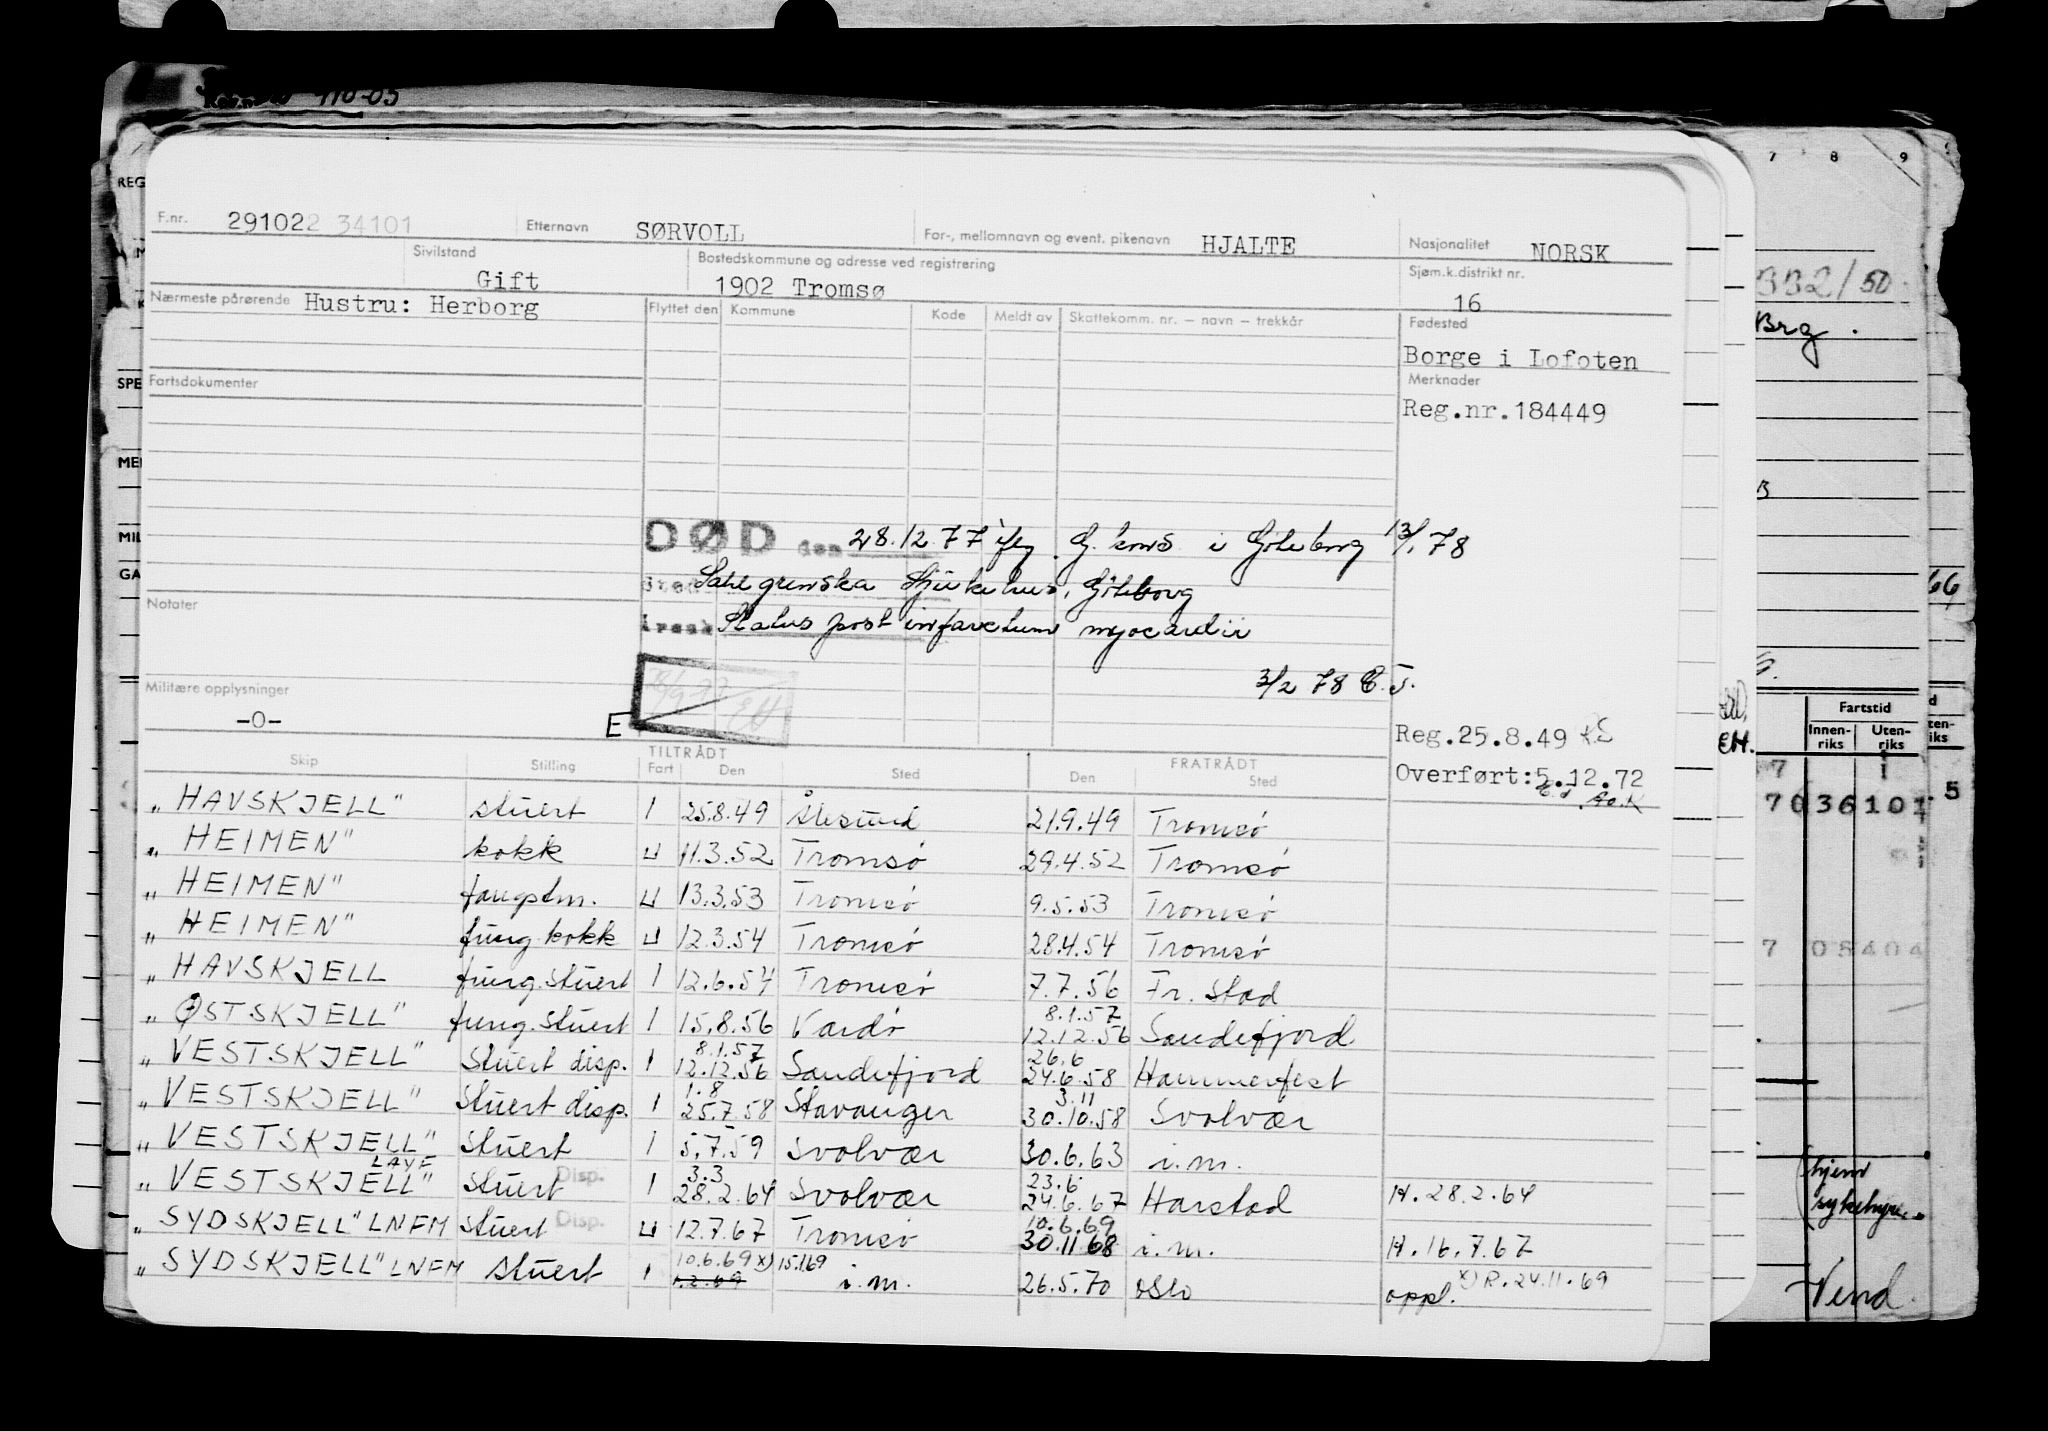 F.nr. 291022 34101 Etternavn SØRVOLL For-, mellomnavn og event. pikenavn HJALTE Nasjonalitet NORSK
Sivilstand Gift Bostedskommune og adresse ved registrering 1902 Tromsø Sjøm.k.distrikt nr. 16
Nærmeste pårørende Hustru: Herborg Flyttet den Kommune Kode Meldt av Skattekomm. nr. – navn – trekkår Fødested
Borge i Lofoten
Fartsdokumenter Merknader
Reg.nr.184449
DØD den 28.12.77 iflg. G. kons i Göteborg 13/1 78
Sahlgrenska Sjukehus, Göteborg
Notater
årsak Status post infarctum myocardii
3/2 78 E.J.
Militære opplysninger
-0-
E
Reg.25.8.49
Overført:5.12.72
Skip Stilling TILTRÅDT Fart Den Sted FRATRÅDT Den Sted
„HAVSKJELL" stuert I 25.8.49 Ålesund 21.9.49 Tromsø
„HEIMEN" kokk U 11.3.52 Tromsø 29.4.52 Tromsø
„HEIMEN" fangstm. U 13.3.53 Tromsø 9.5.53 Tromsø
„HEIMEN" fung. kokk U 12.3.54 Tromsø 28.4.54 Tromsø
„HAVSKJELL fung. stuert I 12.6.54 Tromsø 7.7.56 Fr. stad
„ØSTSKJELL" fung. stuert I 15.8.56 Vardø 8.1.57 12.12.56 Sandefjord
„VESTSKJELL" Stuert disp. I 8.1.57 12.12.56 Sandefjord 26.6 24.6.58 Hammerfest
„VESTSKJELL" Stuert disp. I 1.8 25.7.58 Stavanger 3.11 30.10.58 Svolvær
„VESTSKJELL" stuert I 5.7.59 Svolvær 30.6.63 i.m.
„VESTSKJELL" LAYF stuert Disp. I 3.3 28.2.64 Svolvær 23.6 24.6.67 Harstad H. 28.2.64
„SYDSKJELL" LNFM stuert Disp. U 12.7.67 Tromsø 10.6.69 30.11.68 i.m. H. 16.7.67
„SYDSKJELL" LNFM stuert I 10.6.69 x) 1.2.69 15.1.69 i.m. 26.5.70 Oslo oppl. x) R. 24.11.69
REG
SPE
MIL
GA
7 8 9
332/50
Brg.
66
EH.
Fartstid
Innenriks Utenriks
7 1
7 036101 5
7 05404
hjem
Vend